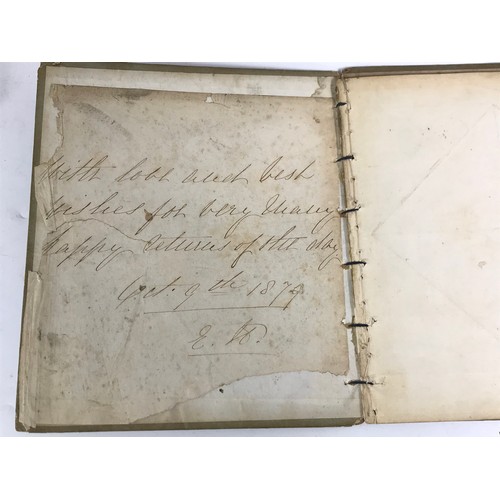 With love and best
wishes for very many
happy returns of the day
Oct. 9th 1879
E. H.